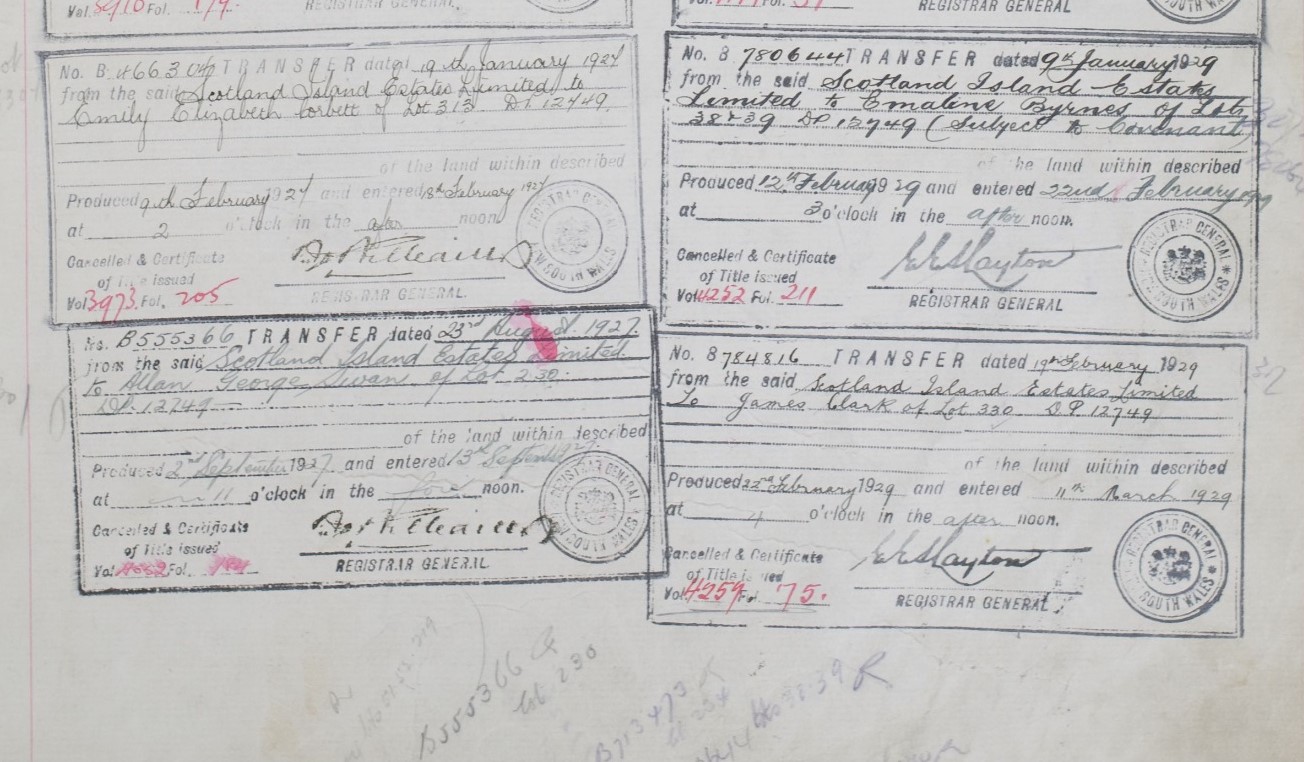 Vol. Fol. 179.
REGISTRAR GENERAL
No. B TRANSFER dated 19th January 1927
from the said Scotland Island Estates Limited to
Emily Elizabeth Corbett of Lot 313 DP 12749
of the land within described
Produced 9th February 1927 and entered 18th February 1927
at 2 o'clock in the after noon
Cancelled & Certificate
of Title issued
Vol 3973 Fol. 205
REGISTRAR GENERAL.
REGISTRAR GENERAL NEW SOUTH WALES
No. B555366 TRANSFER dated 23rd August 1927
from the said Scotland Island Estates Limited
to Allan George Swan of Lot 230
DP. 12749
of the land within described
Produced 2nd September 1927 and entered 13th September 1927
at 11 o'clock in the fore noon.
Cancelled & Certificate
of Title issued
Vol Fol.
REGISTRAR GENERAL
REGISTRAR GENERAL NEW SOUTH WALES
Vol. Fol. 37
REGISTRAR GENERAL
SOUTH WALES
No. B 780644 TRANSFER dated 9th January 1929
from the said Scotland Island Estates
Limited to Emalene Byrnes of Lots
38 & 39 DP 12749 (Subject to Covenant)
of the land within described
Produced 12th February 1929 and entered 22nd February 1929
at 3 o'clock in the after noon.
Cancelled & Certificate
of Title issued
Vol 4252 Fol. 211
REGISTRAR GENERAL
REGISTRAR GENERAL NEW SOUTH WALES
No. B 784816 TRANSFER dated 19th February 1929
from the said Scotland Island Estates Limited
To James Clark of Lot 330 D.P. 12749
of the land within described
Produced 22nd February 1929 and entered 11th March 1929
at 4 o'clock in the after noon.
Cancelled & Certificate
of Title issued
Vol 4257 Fol. 75.
REGISTRAR GENERAL
REGISTRAR GENERAL NEW SOUTH WALES
B555366
Lot 230
B713473 R
Lots 38-39 R